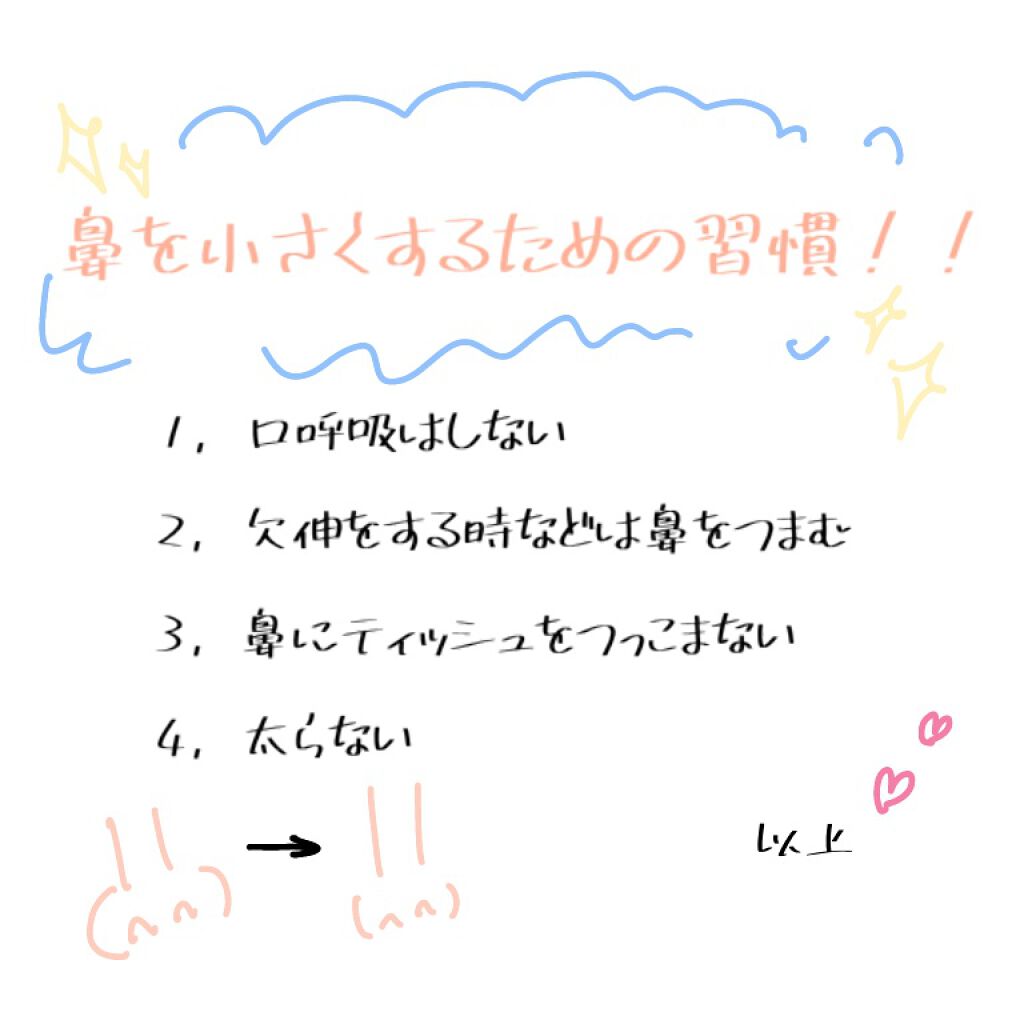 鼻を小さくするための習慣！！
1, 口呼吸はしない
2, 欠伸をする時などは鼻をつまむ
3, 鼻にティッシュをつっこまない
4, 太らない
以上